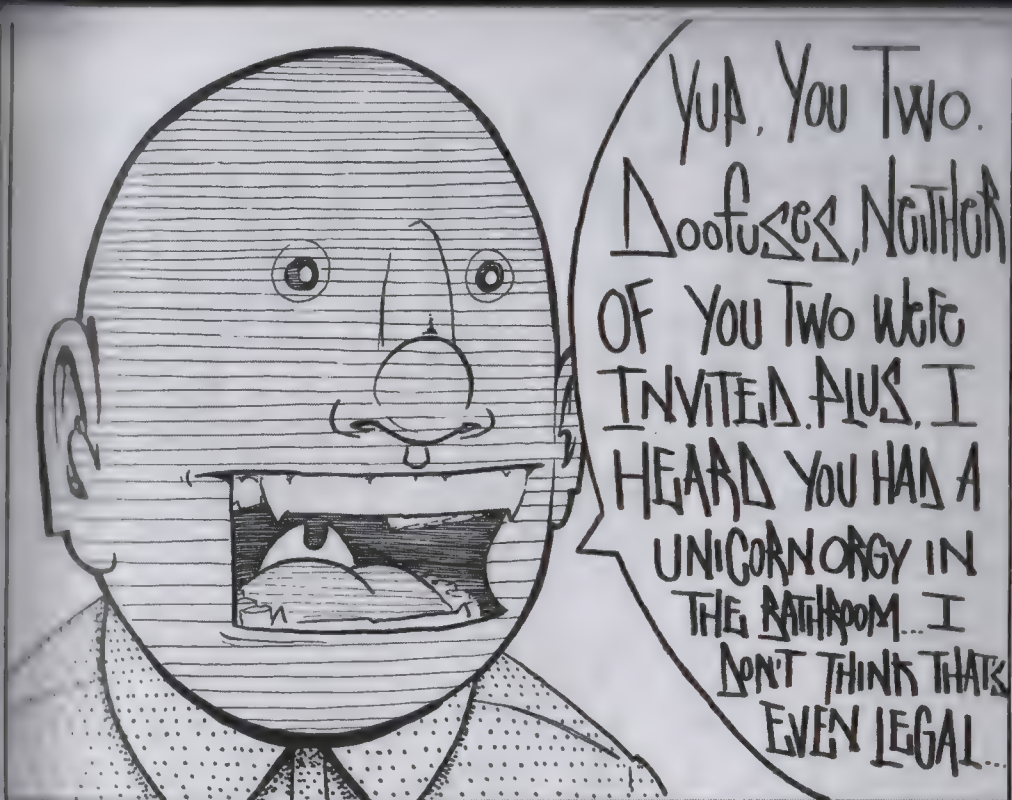 Yup. You Two.
Doofuses, Neither
OF YOU Two were
INVITED. PLUS, I
HEARD YOU HAD A
UNICORN ORGY IN
THE BATHROOM... I
DON'T THINK THAT'S
EVEN LEGAL...